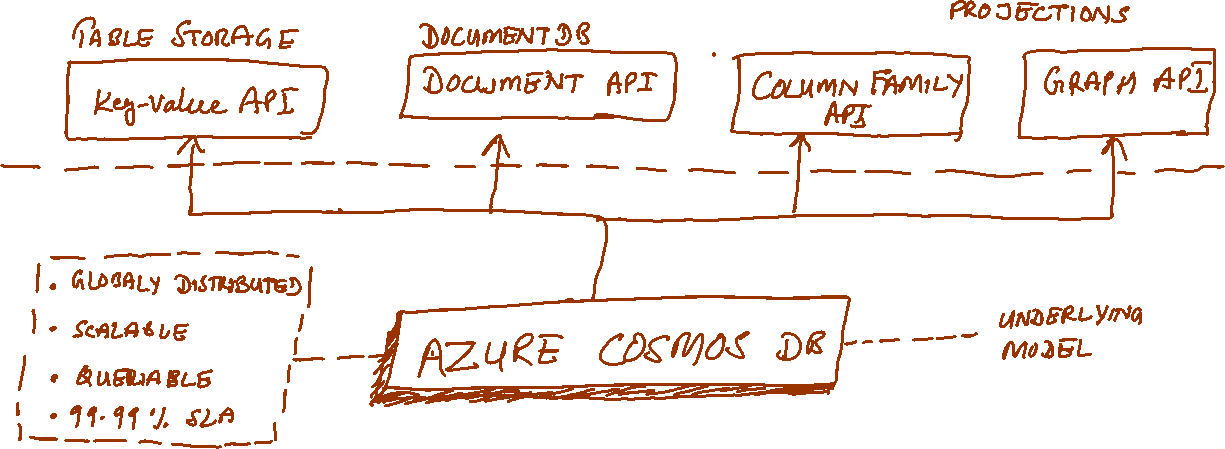 PROJECTIONS
TABLE STORAGE
Key-Value API
DOCUMENTDB
DOCUMENT API
COLUMN FAMILY
API
GRAPH API
• GLOBALY DISTRIBUTED
• SCALABLE
• QUERIABLE
• 99.99% SLA
AZURE COSMOS DB
UNDERLYING
MODEL